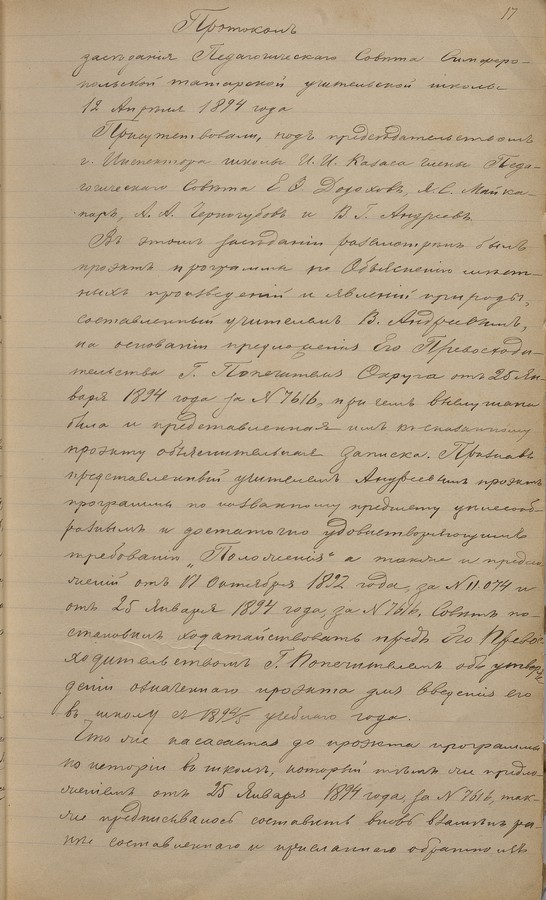 17
Протоколъ
засѣданія Педагогическаго Совѣта Симферо-
польской татарской учительской школы
12 Апрѣля 1894 года
Присутствовали, подъ предсѣдательствомъ
г. Инспектора школы И. И. Казаса члены Педа-
гогическаго Совѣта Е. Ѳ. Додоховъ, Я. С. Майка-
паръ, А. А. Черногубовъ и В. Г. Андреевъ.
Въ этомъ засѣданіи разсмотрѣнъ былъ
проэктъ программы по Объясненію
произведеній и явленій природы,
составленный учителемъ В. Андреевымъ,
на основаніи предложенія Его Превосходи-
тельства Г. Попечителя Округа отъ 25 Ян-
варя 1894 года за № 7616, при чемъ выслушана
была и представленная имъ къ сказанному
проэкту объяснительная записка. Признавъ
представленный учителемъ Андреевымъ проэктъ
программы по названному предмету цѣлесооб-
разнымъ и достаточно удовлетворяющимъ
требованію „Положенія“ а также и предло-
женій отъ 17 Октября 1892 года, за № 11.074 и
отъ 25 Января 1894 года, за № 7616, Совѣтъ по-
становилъ ходатайствовать предъ Его Превос-
ходительствомъ Г. Попечителемъ объ утверж-
деніи означеннаго проэкта для введенія его
въ школу съ 1894/5 учебнаго года.
Что же касается до проэкта программы
по исторіи въ школѣ, который тѣмъ же предло-
женіемъ отъ 25 Января 1894 года, за № 7616, так-
же предписывалось составить вновь взамѣнъ ра-
нѣе составленнаго и присланнаго обратно